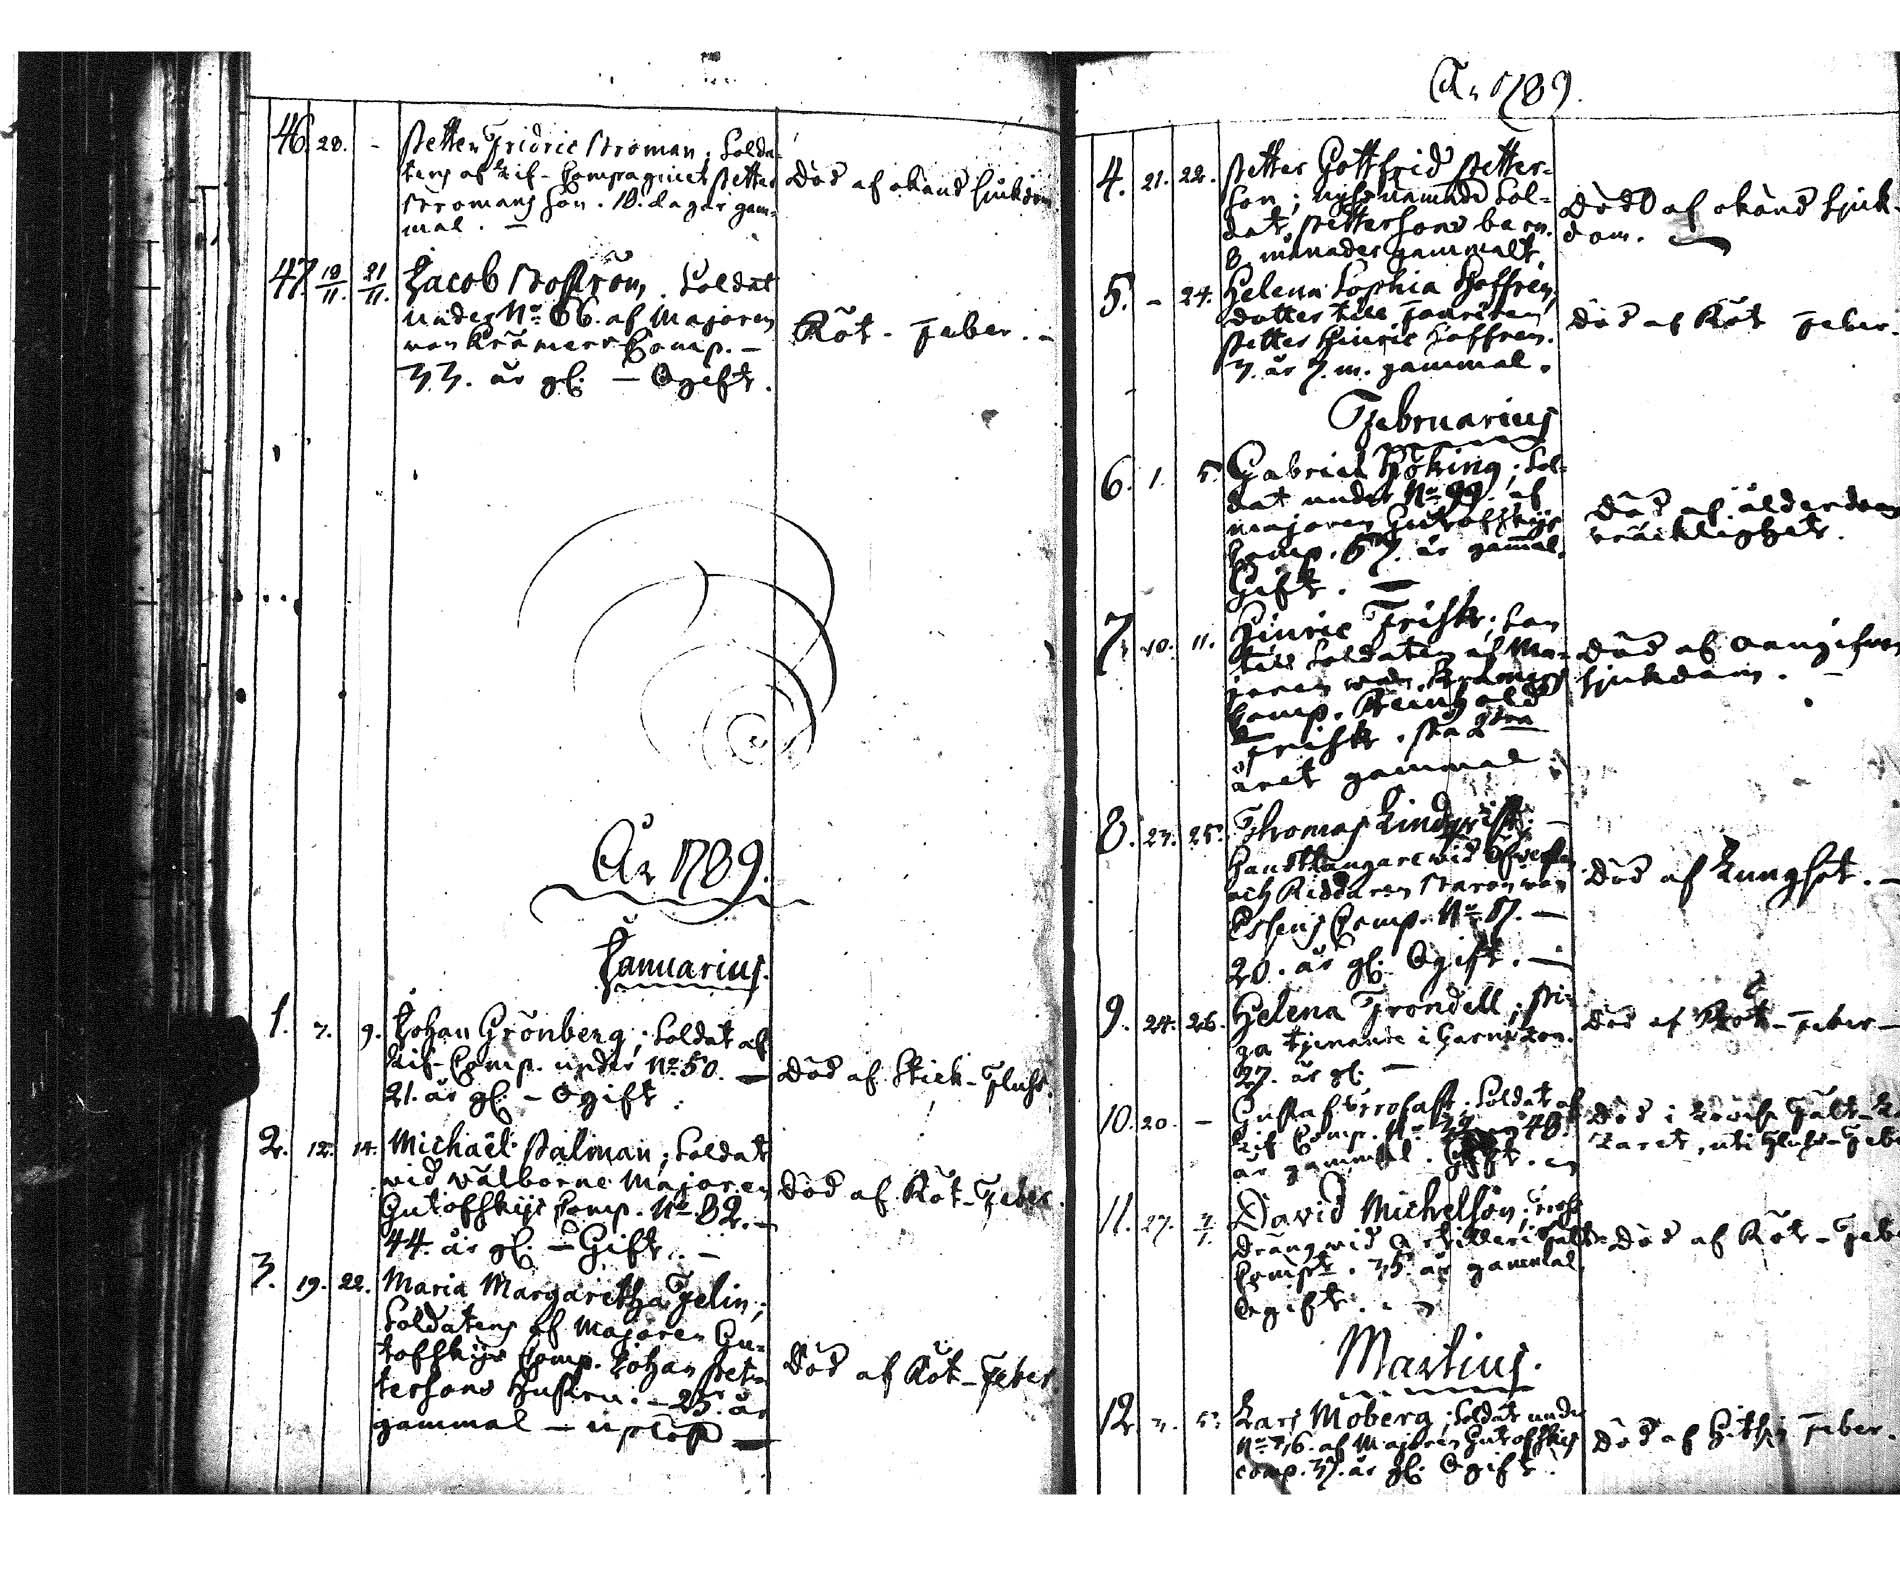 46. 28. - Petter Fridric Broman; Solda-
tens af Lif-Compagniet Petter
Bromans Son. 18. dagar gam-
mal. -
Död af okänd siukdom
47. 19/11. 21/11. Jacob Boström. Soldat
under No 66. af Majoren
von Kræmers Comp. -
33. år gl: - Ogift.
Röt-Feber. -
År 1789.
Januarius.
1. 7. 9. Johan Grönberg; Soldat af
Lif-Comp. under No 50. -
21. år gl: - Ogift.
Död af Stick-Fluss.
2. 12. 14. Michaël Palman; Soldat
wid wälborne Majoren
Gutofskys Comp. No 82. -
44. år gl: - Gift. -
Död af Röt-Feber.
3. 19. 22. Maria Margaretha Felin;
Soldatens af Majoren Gu-
tofskys Comp. Johan Pet-
tersons Hustru. - 25. år
gammal -
Död af Röt-Feber.
År 1789.
4. 21. 22. Petter Gottfrid Petter-
son; nyss nämnde Sol-
dat Pettersons barn.
8 månader gammalt.
Död af okänd sjuk-
dom.
5. - 24. Helena Sophia Hoffrén,
dotter till Fouriren
Petter Hinric Hoffren.
3. år 7. m. gammal.
Död af Röt Feber.
Februarius
6. 1. 5. Gabriel Höking; Sol-
dat under No 99. af
Majoren Gutofskys
Comp. 57. år gammal.
Gift. -
Död af ålderdoms
bräcklighet.
7. 10. 11. Hinric Frisk; Son
till Soldaten af Ma-
joren von Kræmers
Comp. Reinhold
Frisk. På 2dra
året gammal.
Död af oangifven
sjukdom. -
8. 23. 25. Thomas Lindqvist; -
Handtlangare wid Öfversten
och Riddaren Baron von
Essens Comp. No 87. -
20. år gl: Ogift. -
Död af Lungsot. -
9. 24. 26. Helena Frondell; Pi-
ga tjenande i Garnizon.
27. år gl: -
Död af Röt-Feber -
10. 20. - Gustaf Brofast. Soldat af
Lif Comp. No 48.
år gammal.
Död i Lovisa Fält-La-
zaret, uti Fluss-Feber
11. 27. David Michelson; Tross
dräng wid Artilleri Fält-
Comp. 35. år gammal.
Ogift.
Död af Röt-Feber
Martius.
12. 3. 5. Lars Moberg; Soldat under
No 76. af Majoren Gutofskys
Comp. 37. år gl: Ogift.
Död af Hitsig Feber.